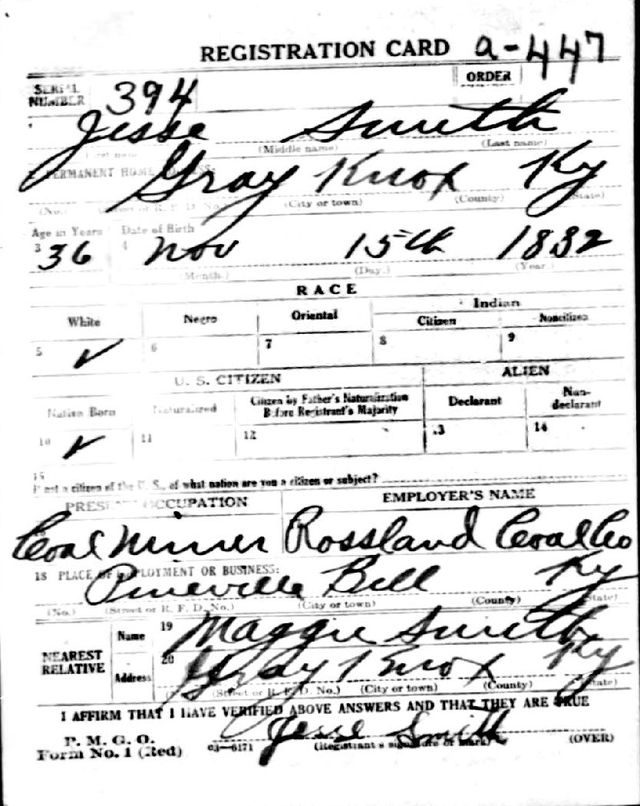 REGISTRATION CARD a-447
SERIAL NUMBER 394 ORDER
Jesse Smith
(Middle name) (Last name)
PERMANENT HOME
Gray Knox Ky
(No.) (Street or R. F. D. No.) (City or town) (County) (State)
Age in Years Date of Birth
3 36 4 Nov 15th 1882
(Month.) (Day.) (Year.)
RACE
White Negro Oriental Indian
Citizen Noncitizen
5 ✓ 6 7 8 9
U. S. CITIZEN ALIEN
Native Born Naturalized Citizen by Father's Naturalization Before Registrant's Majority Declarant Non-declarant
10 ✓ 11 12 13 14
15
If not a citizen of the U. S., of what nation are you a citizen or subject?
PRESENT OCCUPATION EMPLOYER'S NAME
Coal Miner Rossland Coal Co
18 PLACE OF EMPLOYMENT OR BUSINESS:
Pineville Bell Ky
(No.) (Street or R. F. D. No.) (City or town) (County) (State)
NEAREST RELATIVE
Name 19 Maggie Smith
Address 20 Gray Knox Ky
(Street or R. F. D. No.) (City or town) (County) (State)
I AFFIRM THAT I HAVE VERIFIED ABOVE ANSWERS AND THAT THEY ARE TRUE
P. M. G. O.
Form No. 1 (Red) 03-6171 Jesse Smith
(Registrant's signature or mark) (OVER)